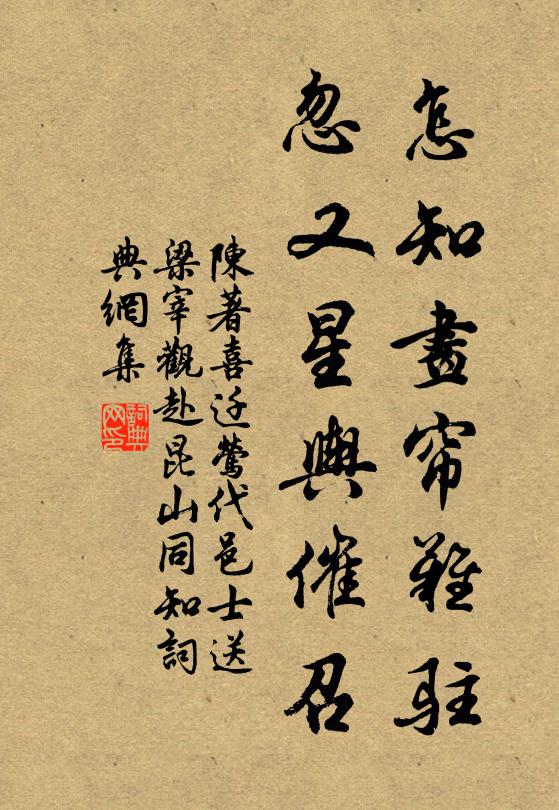 怎知畫帘難駐
忽又星輿催召
陳著喜迁鶯代邑士送
梁宰觀赴昆山同知詞
典網集
詞典网印